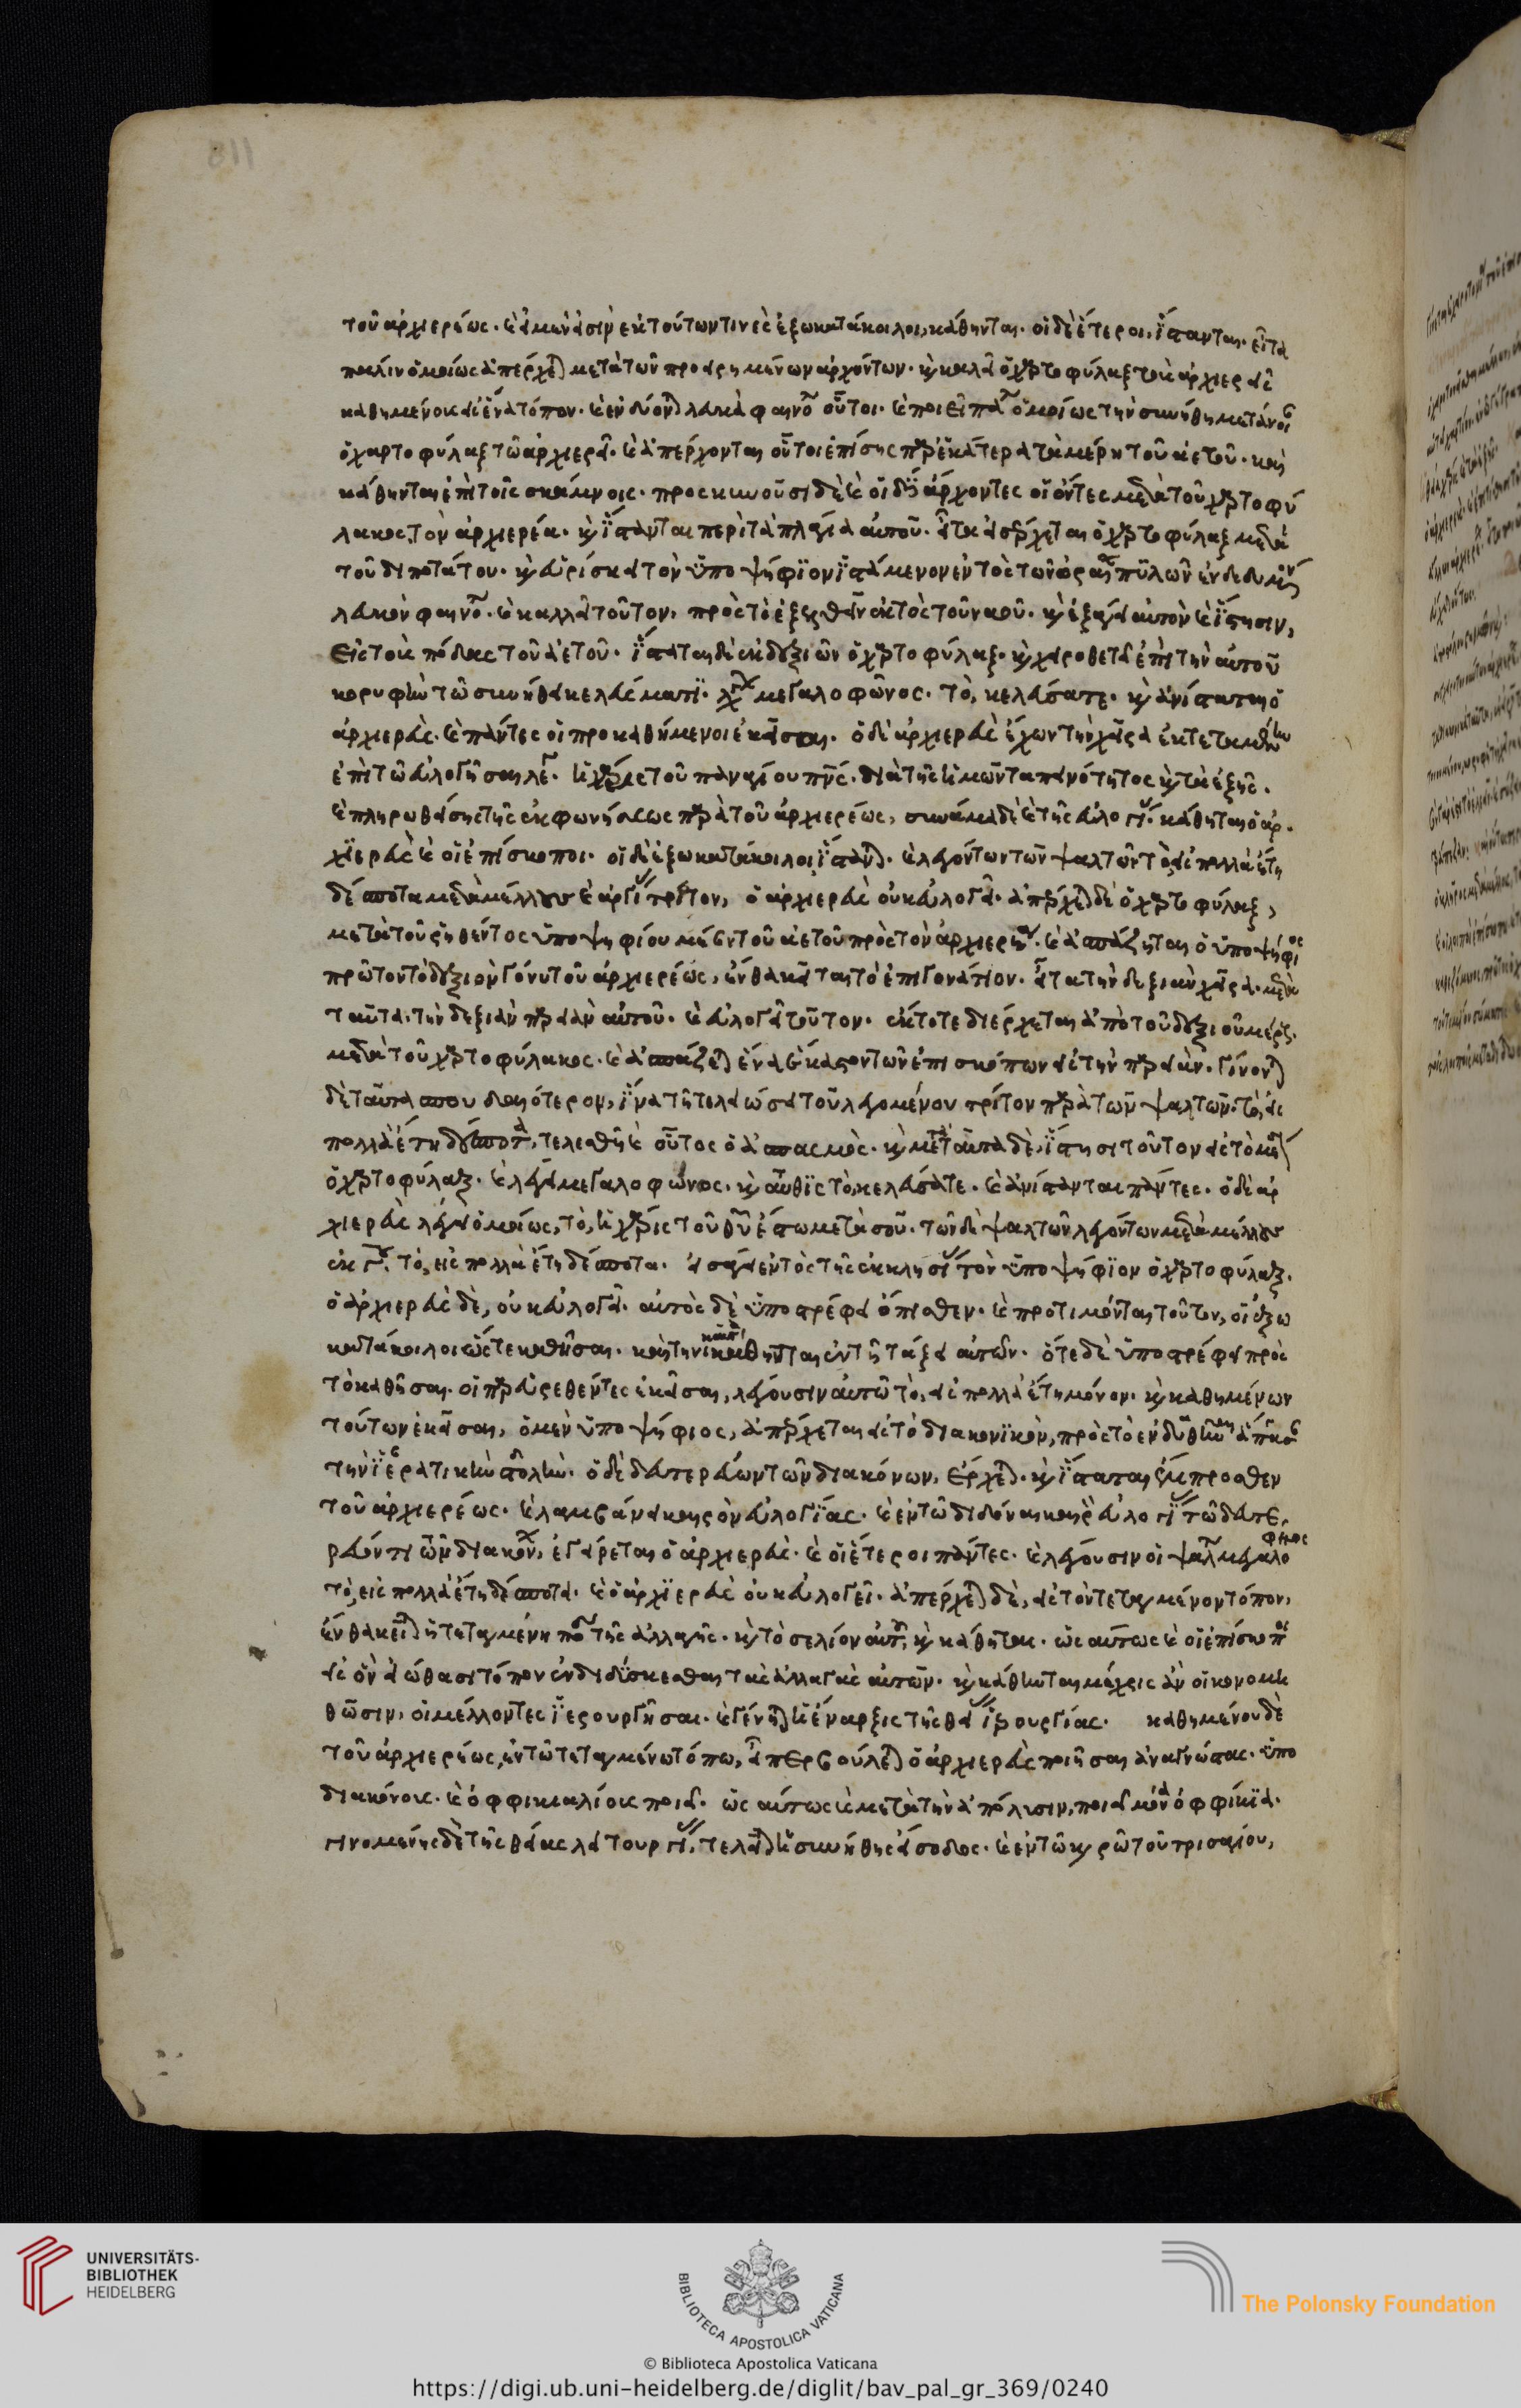 811
τοῦ ἀρχιερέως. καὶ εἰ μὲν εἰσὶν ἐκ τούτων τινὲς ἐξωκατάκοιλοι, κάθηνται. οἱ δὲ ἕτεροι, ἵστανται. εἶτα
πάλιν ὁμοίως ἀπέρχεται μετὰ τῶν προειρημένων ἀρχόντων. καὶ καλεῖ ὁ χαρτοφύλαξ τοὺς ἀρχιερεῖς
καθημένους εἰς ἕνα τόπον. καὶ ἐνδύονται λευκὰ φαινόλια οὗτοι. καὶ ποιεῖ πάλιν ὁμοίως τὴν συνήθη μετάνοιαν
ὁ χαρτοφύλαξ τῷ ἀρχιερεῖ. καὶ ἀπέρχονται οὗτοι ἐπίσης παρ' ἑκάτερα τὰ μέρη τοῦ ἀετοῦ. καὶ
κάθηνται ἐπὶ τοῖς σκάμνοις. προσκυνοῦσι δὲ καὶ οἱ δύο ἄρχοντες οἱ ὄντες μετὰ τοῦ χαρτοφύ
λακος, τὸν ἀρχιερέα. καὶ ἵστανται περὶ τὰ πλάγια αὐτοῦ. εἶτα εἰσέρχεται ὁ χαρτοφύλαξ μετὰ
τοῦ διποτάτου. καὶ εὑρίσκει τὸν ὑποψήφιον ἱστάμενον ἐντὸς τῶν ὡραίων πυλῶν ἐνδεδυμένον
λευκὸν φαινόλιον. καὶ καλεῖ τοῦτον, πρὸς τὸ ἐξελθεῖν ἐκτὸς τοῦ ναοῦ. καὶ ἐξάγει αὐτὸν καὶ ἵστησιν,
εἰς τοὺς πόδας τοῦ ἀετοῦ. ἵσταται δὲ ἐκ δεξιῶν ὁ χαρτοφύλαξ. καὶ χειροθετεῖ ἐπὶ τὴν αὐτοῦ
κορυφὴν τῷ συνήθει κελεύσματι. λέγει μεγαλοφώνως. τὸ, κελεύσατε. καὶ ἀνίσταται ὁ
ἀρχιερεὺς. καὶ πάντες οἱ προκαθήμενοι ἐκεῖσαι. ὁ δὲ ἀρχιερεὺς ἔχων τὴν χεῖρα ἐκτεταμένην
ἐπὶ τῷ εὐλογῆσαι λέγει. ἡ χάρις τοῦ παναγίου πνς. διὰ τῆς ἡμῶν ταπεινότητος καὶ τὰ ἑξῆς.
καὶ πληρωθείσης τῆς ἐκφωνήσεως παρὰ τοῦ ἀρχιερέως, συνάμα δὲ καὶ τῆς εὐλογίας. κάθηται ὁ ἀρ
χιερεὺς καὶ οἱ ἐπίσκοποι. οἱ δὲ ἐξωκατάκοιλοι ἵστανται. καὶ λεγόντων τῶν ψαλτῶν τὸ, εἰς πολλὰ ἔτη
δέσποτα μετὰ μέλους καὶ ἀργίας τρίτον, ὁ ἀρχιερεὺς οὐκ εὐλογεῖ. ἀπέρχεται δὲ ὁ χαρτοφύλαξ,
μετὰ τοῦ ῥηθέντος ὑποψηφίου μέσον τοῦ ἀετοῦ πρὸς τὸν ἀρχιερέα. καὶ ἀσπάζεται ὁ ὑποψήφιος
πρῶτον τὸ δεξιὸν γόνυ τοῦ ἀρχιερέως, ἔνθα κεῖται τὸ ἐπιγονάτιον. εἶτα τὴν δεξιὰν χεῖρα. μετὰ
ταῦτα, τὴν δεξιὰν παρειὰν αὐτοῦ. καὶ εὐλογεῖ τοῦτον. ἔκτοτε διέρχεται ἀπὸ τοῦ δεξιοῦ μέρους.
μετὰ τοῦ χαρτοφύλακος. καὶ ἀσπάζεται ἕνα ἕκαστον τῶν ἐπισκόπων εἰς τὴν παρειάν. γίνονται
δὲ ταῦτα σπουδαιότερον, ἵνα τῇ τελειώσει τοῦ λεγομένου τρίτον παρὰ τῶν ψαλτῶν τὸ, εἰς
πολλὰ ἔτη δέσποτα, τελεσθῇ καὶ οὗτος ὁ ἀσπασμός. καὶ μετὰ ταῦτα δὲ, ἵστησι τοῦτον εἰς τὸ μέσον
ὁ χαρτοφύλαξ. καὶ λέγει μεγαλοφώνως. καὶ αὖθις τὸ, κελεύσατε. καὶ ἀνίστανται πάντες. ὁ δὲ ἀρ
χιερεὺς λέγει ὁμοίως, τὸ, ἡ χάρις τοῦ θῦ ἔστω μετὰ σοῦ. τῶν δὲ ψαλτῶν λεγόντων μετὰ μέλους
ἐκ γ΄. τὸ, εἰς πολλὰ ἔτη δέσποτα. εἰσάγει ἐντὸς τῆς ἐκκλησίας τὸν ὑποψήφιον ὁ χαρτοφύλαξ.
ὁ ἀρχιερεὺς δὲ, οὐκ εὐλογεῖ. αὐτὸς δὲ ὑποστρέφει ὄπισθεν. καὶ προτιμῶνται τοῦτον, οἱ ἐξω
κατάκοιλοι ὥστε καθῆσαι. κάθηνται ἐν τῇ τάξει αὐτῶν. ὅτε δὲ ὑποστρέφει πρὸς
τὸ καθῆσαι. οἱ παρευρεθέντες ἐκεῖσαι, λέγουσιν αὐτῷ τὸ, εἰς πολλὰ ἔτη μόνον. καὶ καθημένων
τούτων ἐκεῖσαι, ὁ μὲν ὑποψήφιος, ἀπέρχεται εἰς τὸ διακονικὸν, πρὸς τὸ ἐνδυθῆναι
τὴν ἱερατικὴν στολήν. ὁ δὲ δευτερεύων τῶν διακόνων, ἔρχεται. καὶ ἵσταται ἔμπροσθεν
τοῦ ἀρχιερέως. καὶ λαμβάνει καιρὸν εὐλογίας. καὶ ἐν τῷ διδόναι καιρὸν εὐλογίας τῷ δευτε
ρεύοντι τῶν διακόνων, ἐγείρεται ὁ ἀρχιερεὺς. καὶ οἱ ἕτεροι πάντες. καὶ λέγουσιν οἱ ψάλται μεγαλοφώνως
τὸ, εἰς πολλὰ ἔτη δέσποτα. καὶ ὁ ἀρχιερεὺς οὐκ εὐλογεῖ. ἀπέρχεται δὲ, εἰς τὸν τεταγμένον τόπον,
ἔνθα κεῖται ἡ τεταγμένη τῆς ἀλλαγῆς. καὶ τὸ σελίον αὐτοῦ, καὶ κάθηται. ὡσαύτως καὶ οἱ ἐπίσκοποι
εἰς ὃν εἰώθασι τόπον ἐνδιδύσκεσθαι τὰς ἀλλαγὰς αὐτῶν. καὶ κάθηνται μέχρις ἂν οἰκονομη
θῶσιν, οἱ μέλλοντες ἱερουργῆσαι. καὶ γένηται ἡ ἔναρξις τῆς θείας ἱερουργίας. καθημένου δὲ
τοῦ ἀρχιερέως, ἐν τῷ τεταγμένῳ τόπῳ, εἴπερ βούλεται ὁ ἀρχιερεὺς ποιῆσαι ἀναγνώστας. ὑπο
διακόνους. καὶ ὀφφικιαλίους ποιεῖ. ὡσαύτως καὶ μετὰ τὴν ἀπόλυσιν, ποιεῖ μόνα ὀφφίκια.
γινομένης δὲ τῆς θείας λειτουργίας, τελεῖται ἡ συνήθης εἴσοδος. καὶ ἐν τῷ καιρῷ τοῦ τρισαγίου,
UNIVERSITÄTS-
BIBLIOTHEK
HEIDELBERG
BIBLIOTECA APOSTOLICA VATICANA
© Biblioteca Apostolica Vaticana
The Polonsky Foundation
https://digi.ub.uni-heidelberg.de/diglit/bav_pal_gr_369/0240